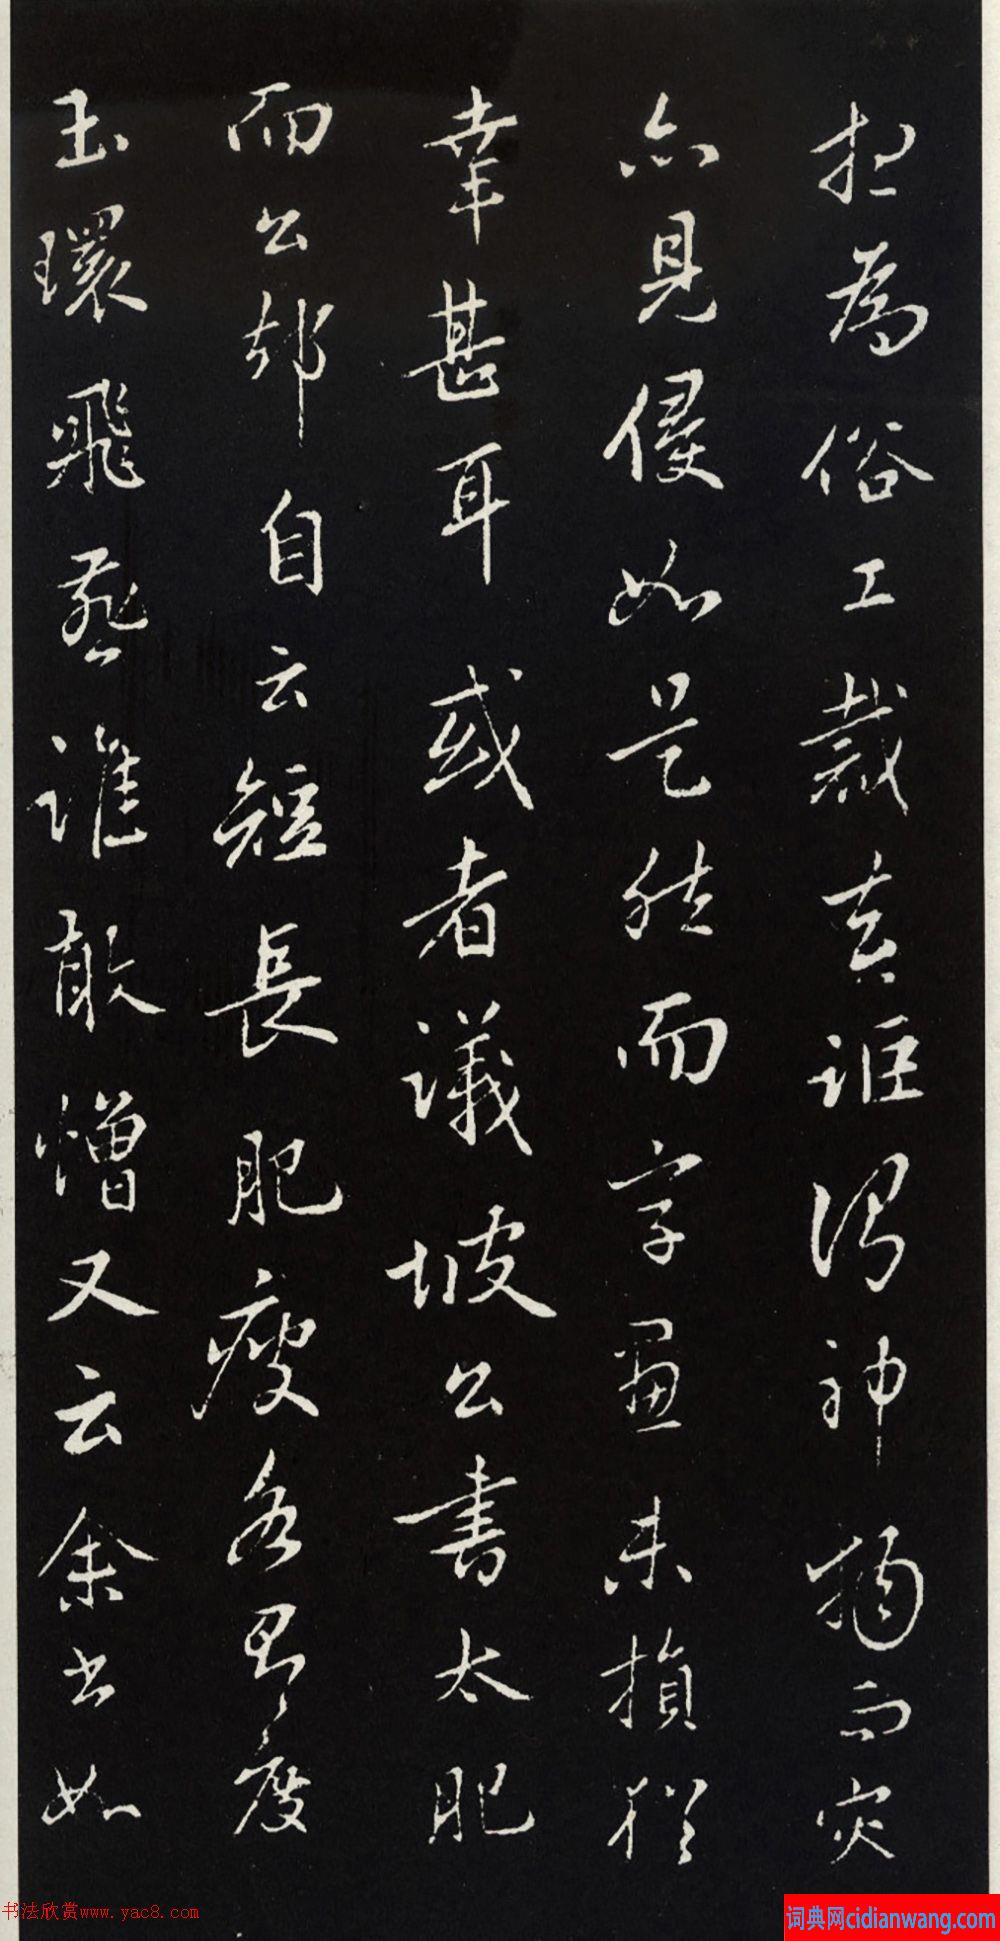 拒為俗工裁去誰謂神物而灾
亦見侵如是然而字畫未損猶
幸甚耳或者議坡公書太肥
而公却自云短長肥瘦各有度
玉環飛燕誰敢憎又云余书如
书法欣赏www.yac8.com
词典网cidianwang.com